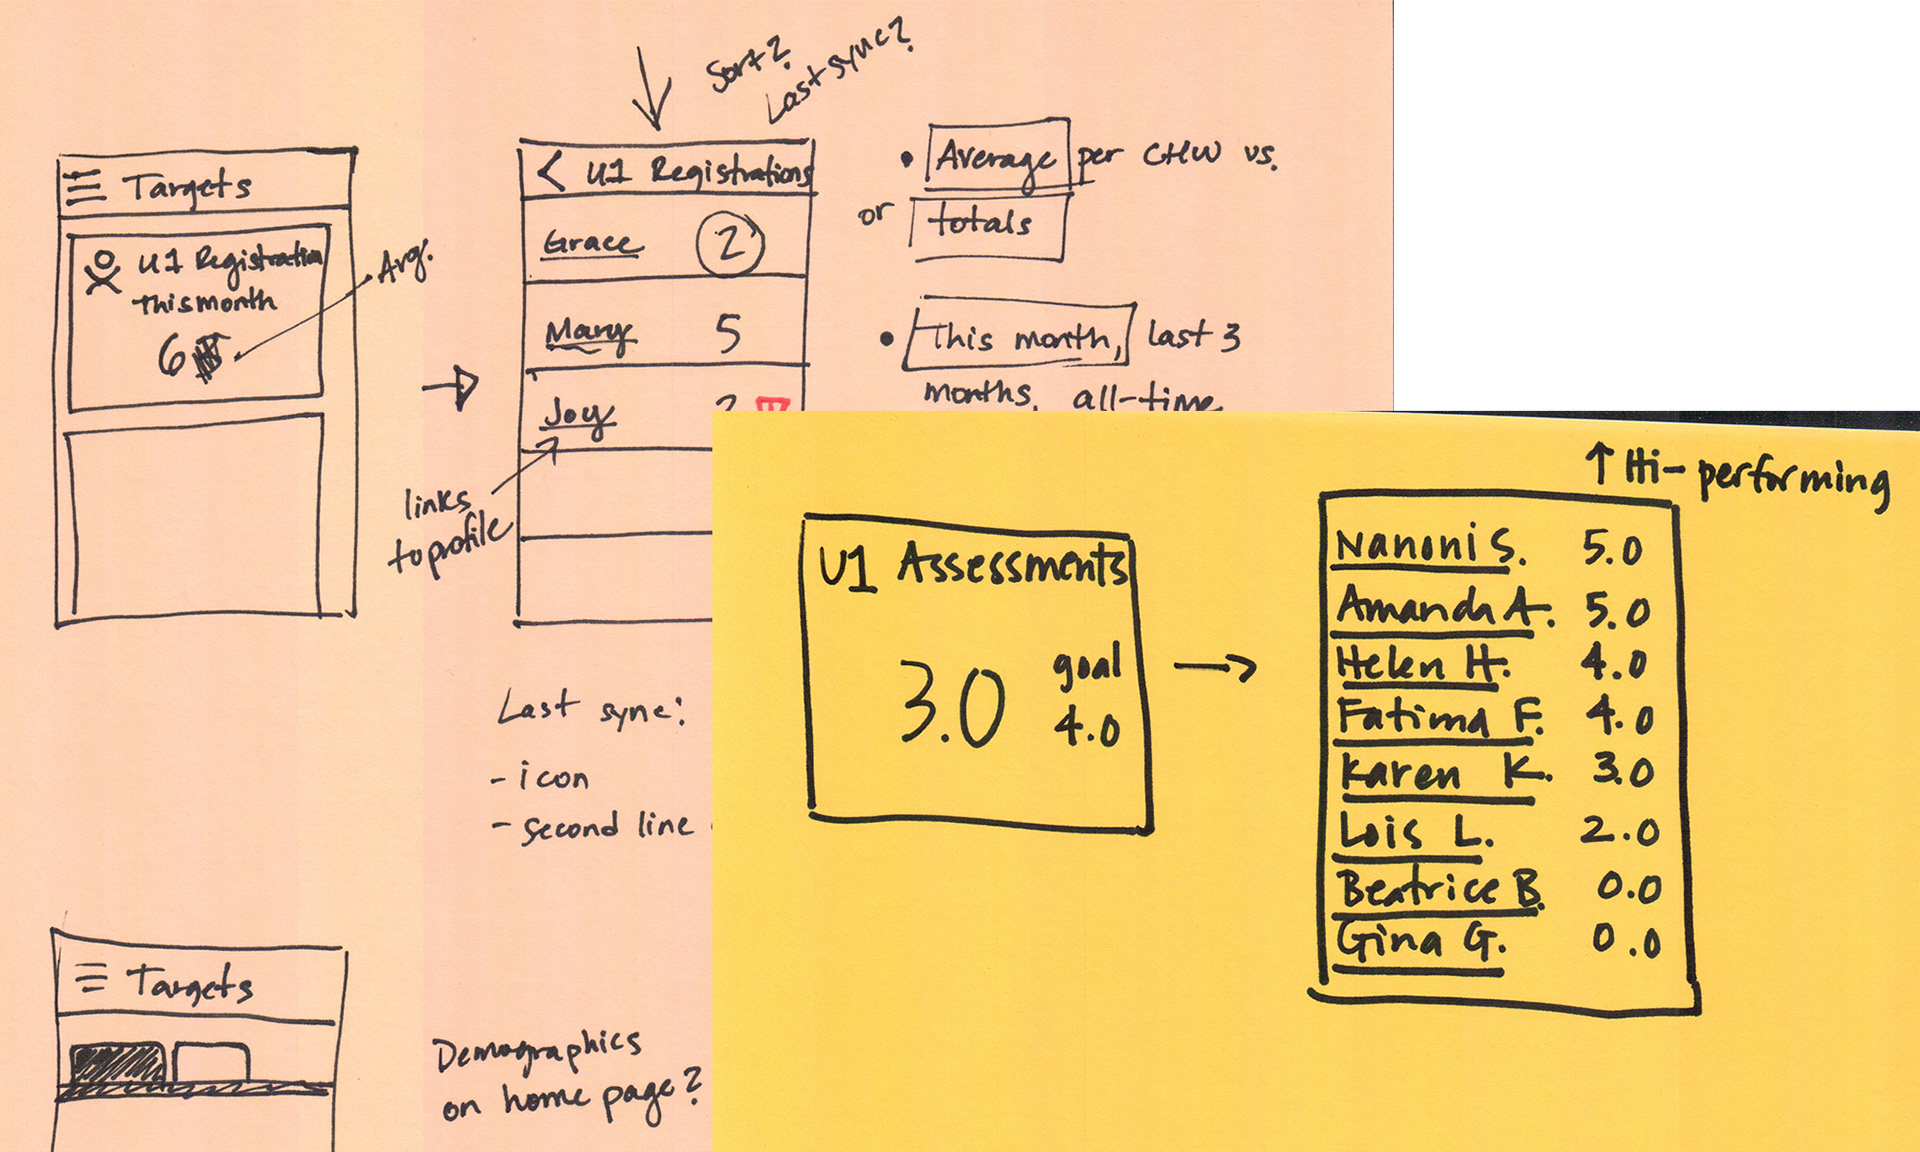 Sort?
Last sync?
Targets
U1 Registration
this month
6
Avg.
< U1 Registrations
Grace 2
Mary 5
Joy
links
to profile
• Average per CHW vs.
or totals
• This month, last 3
months, all-time
Last sync:
- icon
- second line
Targets
Demographics
on home page?
U1 Assessments
3.0
goal
4.0
↑ Hi-performing
Nanoni S. 5.0
Amanda A. 5.0
Helen H. 4.0
Fatima F. 4.0
Karen K. 3.0
Lois L. 2.0
Beatrice B. 0.0
Gina G. 0.0